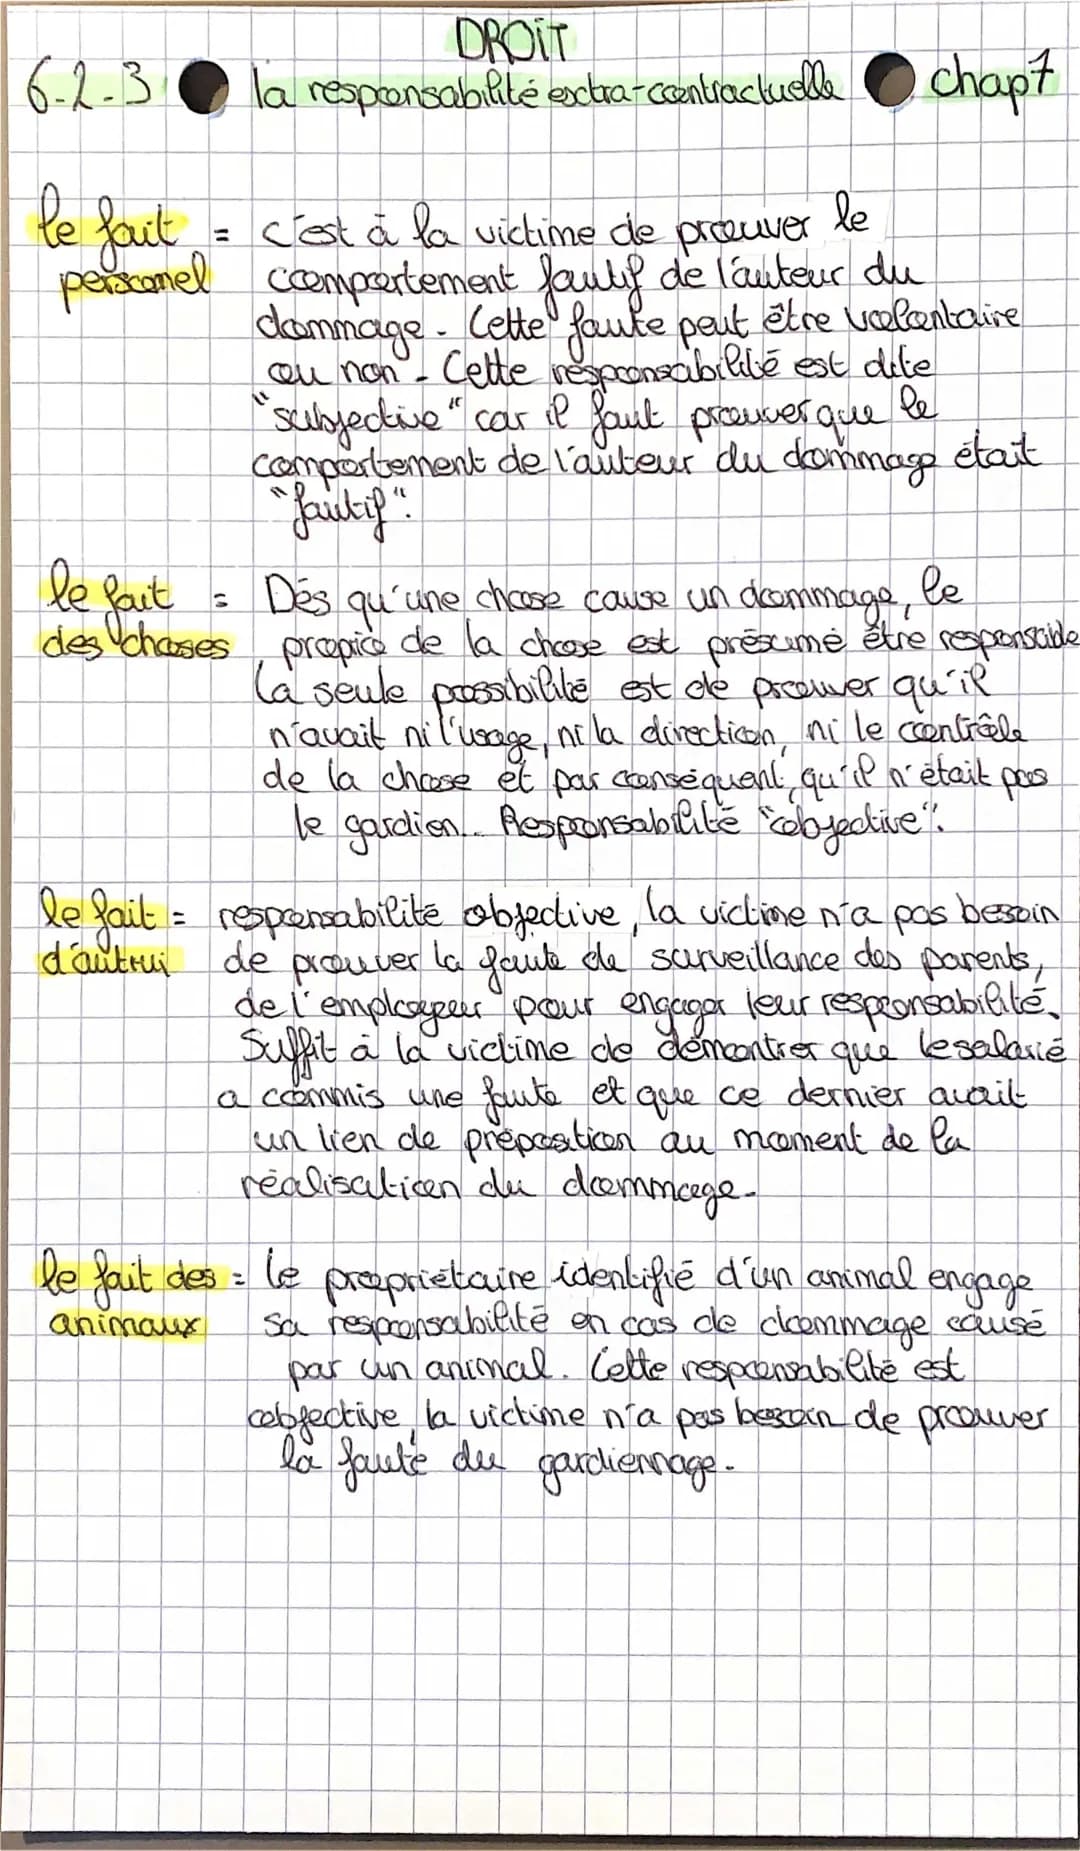 DROIT
6-2-3 la responsabilité extra-contractuelle chap7
le fait = c'est à la victime de prouver le
personel comportement fautif de l'auteur du
dommage. Cette faute peut être volontaire
ou non. Cette responsabilité est dite
"subjective" car il faut prouver que le
comportement de l'auteur du dommage était
"fautif".
le fait = Dès qu'une chose cause un dommage, le
des choses propio de la chose est présumé être responsable
La seule possibilité est de prouver qu'il
n'avait ni l'usage, ni la direction, ni le contrôle
de la chose et par conséquent, qu'il n'était pas
le gardien.. Responsabilité "objective".
le fait = responsabilité objective, la victime n'a pas besoin
d'autrui de prouver la faute de surveillance des parents,
de l'employeur pour engager leur responsabilité.
Suffit à la victime de démontrer que le salarié
a commis une faute et que ce dernier avait
un lien de préposition au moment de la
réalisation du dommage.
le fait des = Le propriétaire identifié d'un animal engage
animaux sa responsabilité en cas de dommage causé
par un animal. Cette responsabilité est
objective, la victime n'a pas besoin de prouver
la faute du gardiennage.